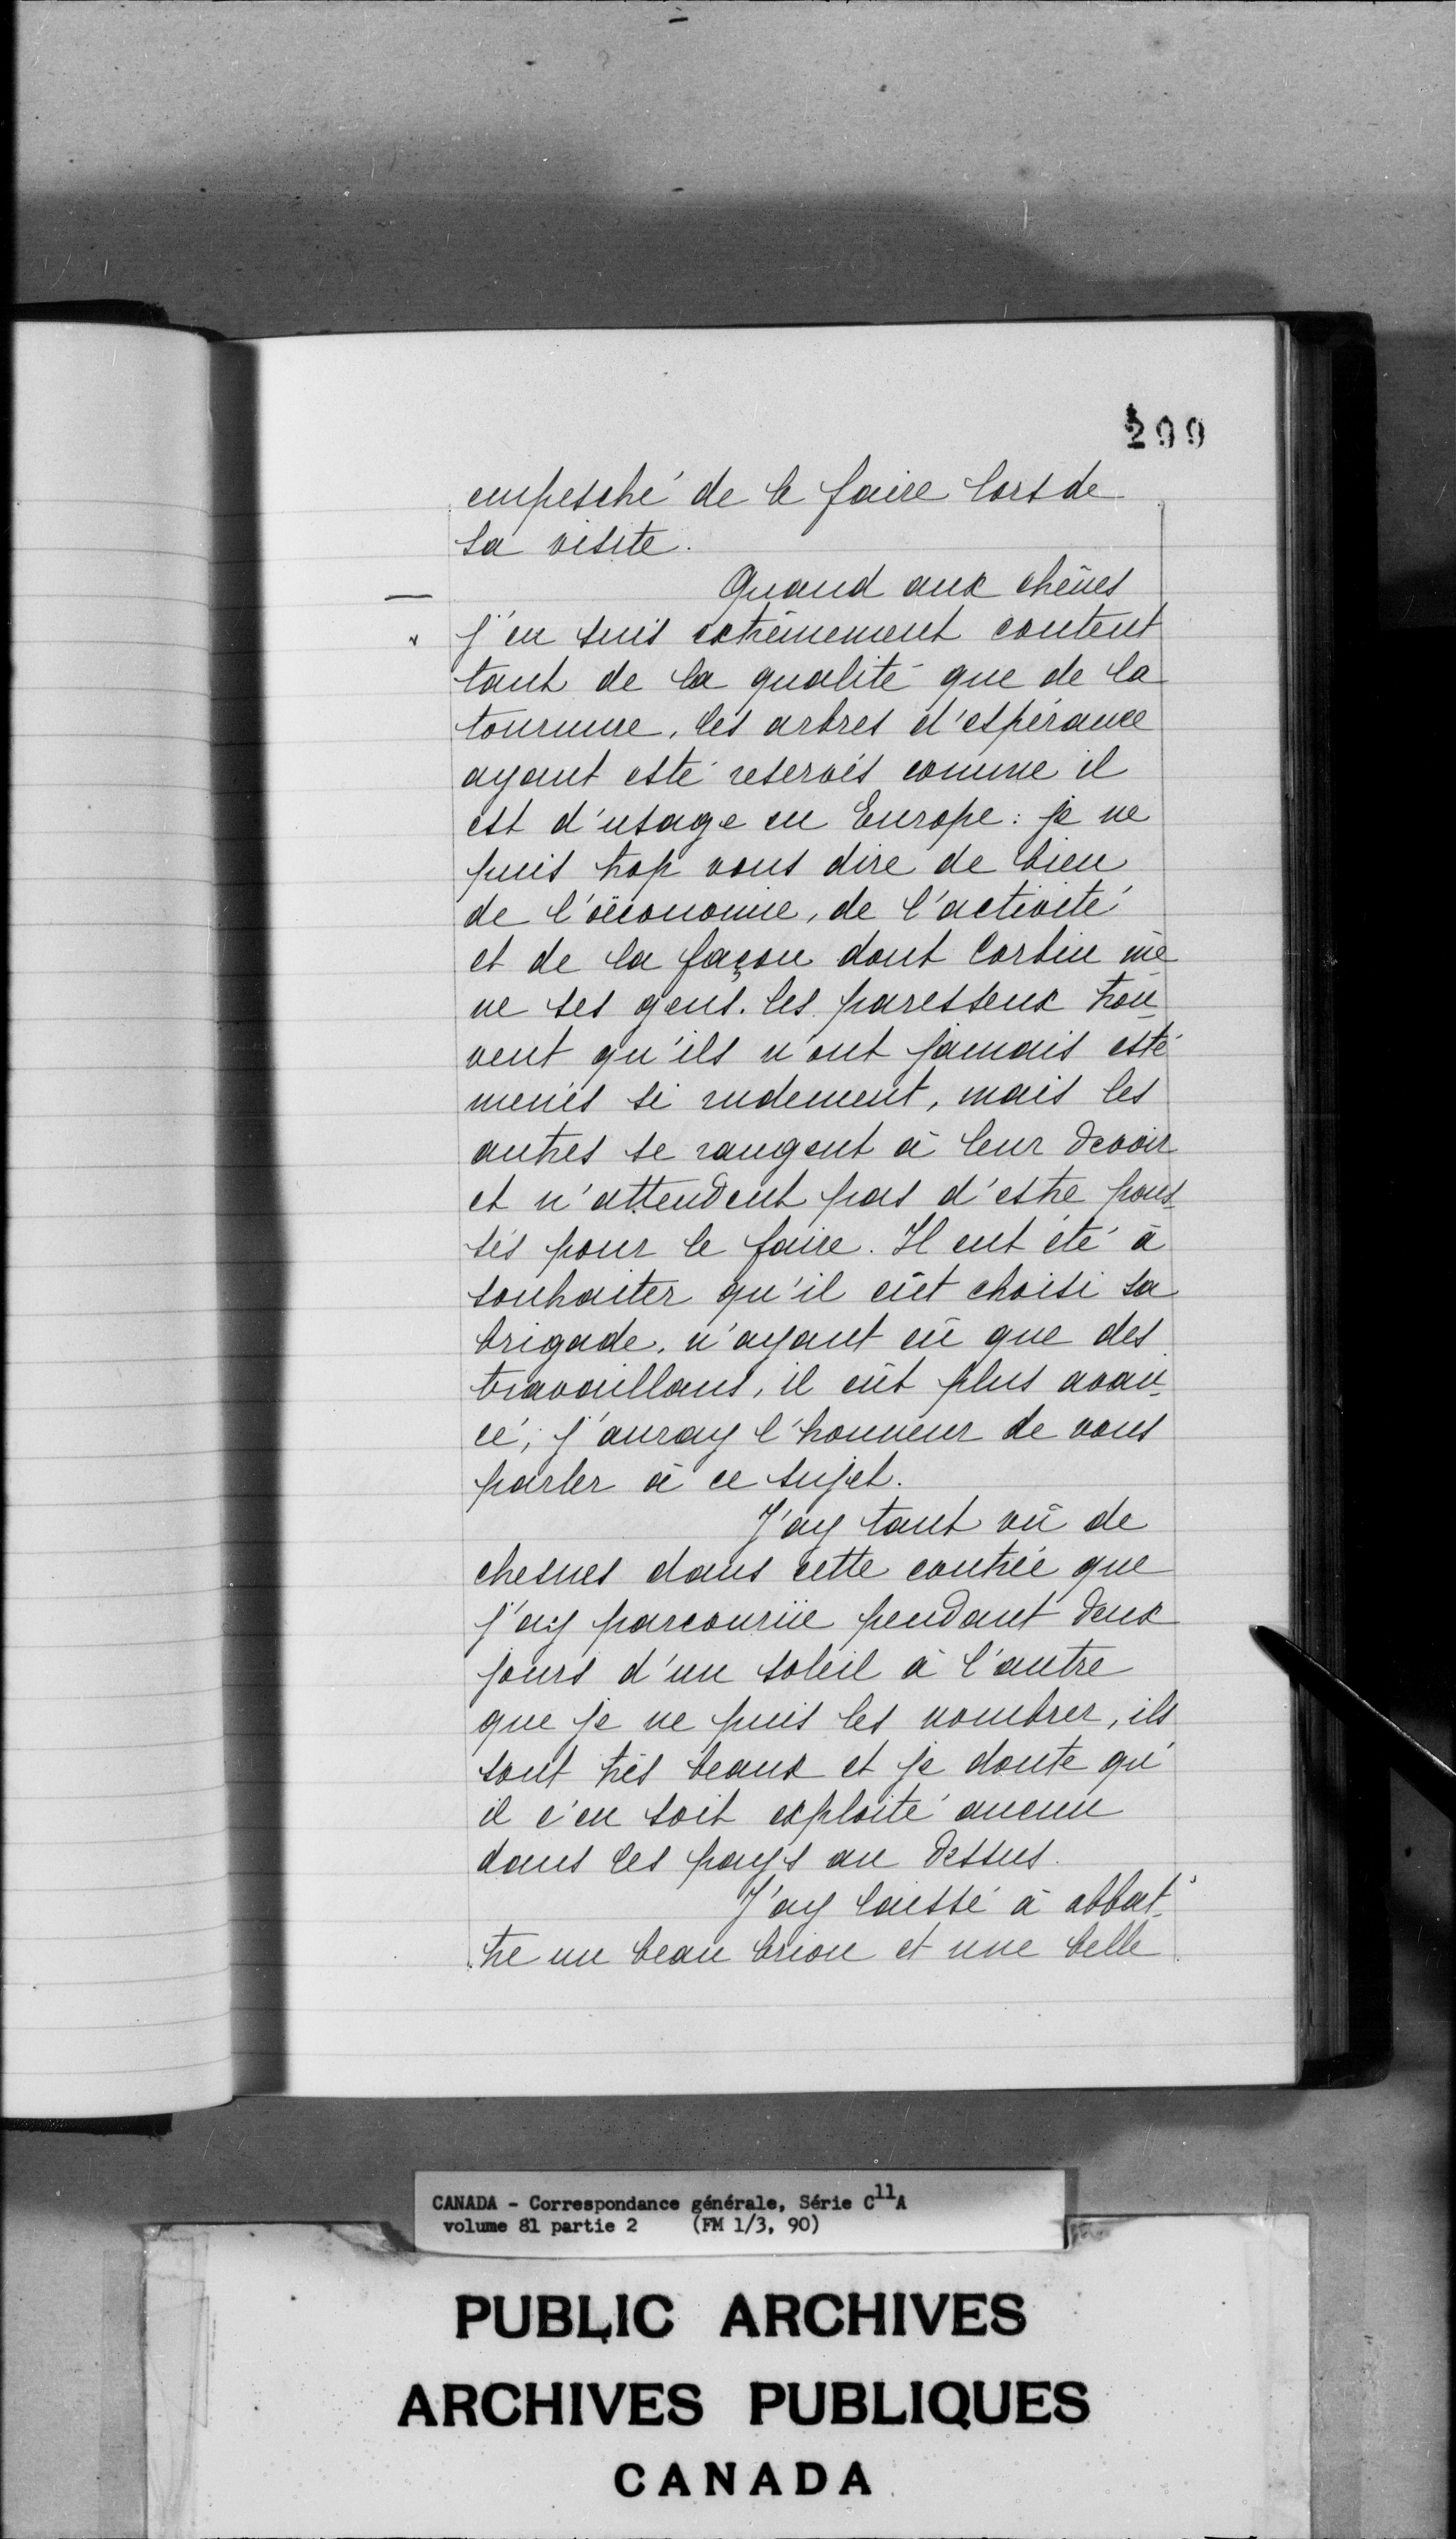 299
empesché de le faire lors de
sa visite.
Quand aux chênes
j'en suis extrêmement content
tant de la qualité que de la
tournure, les arbres d'espérance
ayant esté reservés comme il
est d'usage en Europe : je ne
puis trop vous dire de bien
de l'oëconomie, de l'activité
et de la façon dont Corbin mè
ne ses gens. les paresseux trou-
vent qu'ils n'ont jamais esté
menés si rudement, mais les
autres se rangent à leur devoir
et n'attendent pas d'estre pous-
sés pour le faire. Il eut été à
souhaiter qu'il eût choisi sa
brigade, n'ayant eû que des
travaillans, il eût plus avan-
cé, j'auray l'honneur de vous
parler à ce sujet.
J'ay tant vû de
chesnes dans cette contrée que
j'ay parcourüe pendant deux
jours d'un soleil à l'autre
que je ne puis les nombrer, ils
sont très beaux et je doute qu'
il s'en soit exploité aucun
dans les pays au dessus.
J'ay laissé à abbat-
tre un beau brion et une belle
CANADA - Correspondance générale, Série C11A
volume 81 partie 2 (FM 1/3, 90)
PUBLIC ARCHIVES
ARCHIVES PUBLIQUES
CANADA